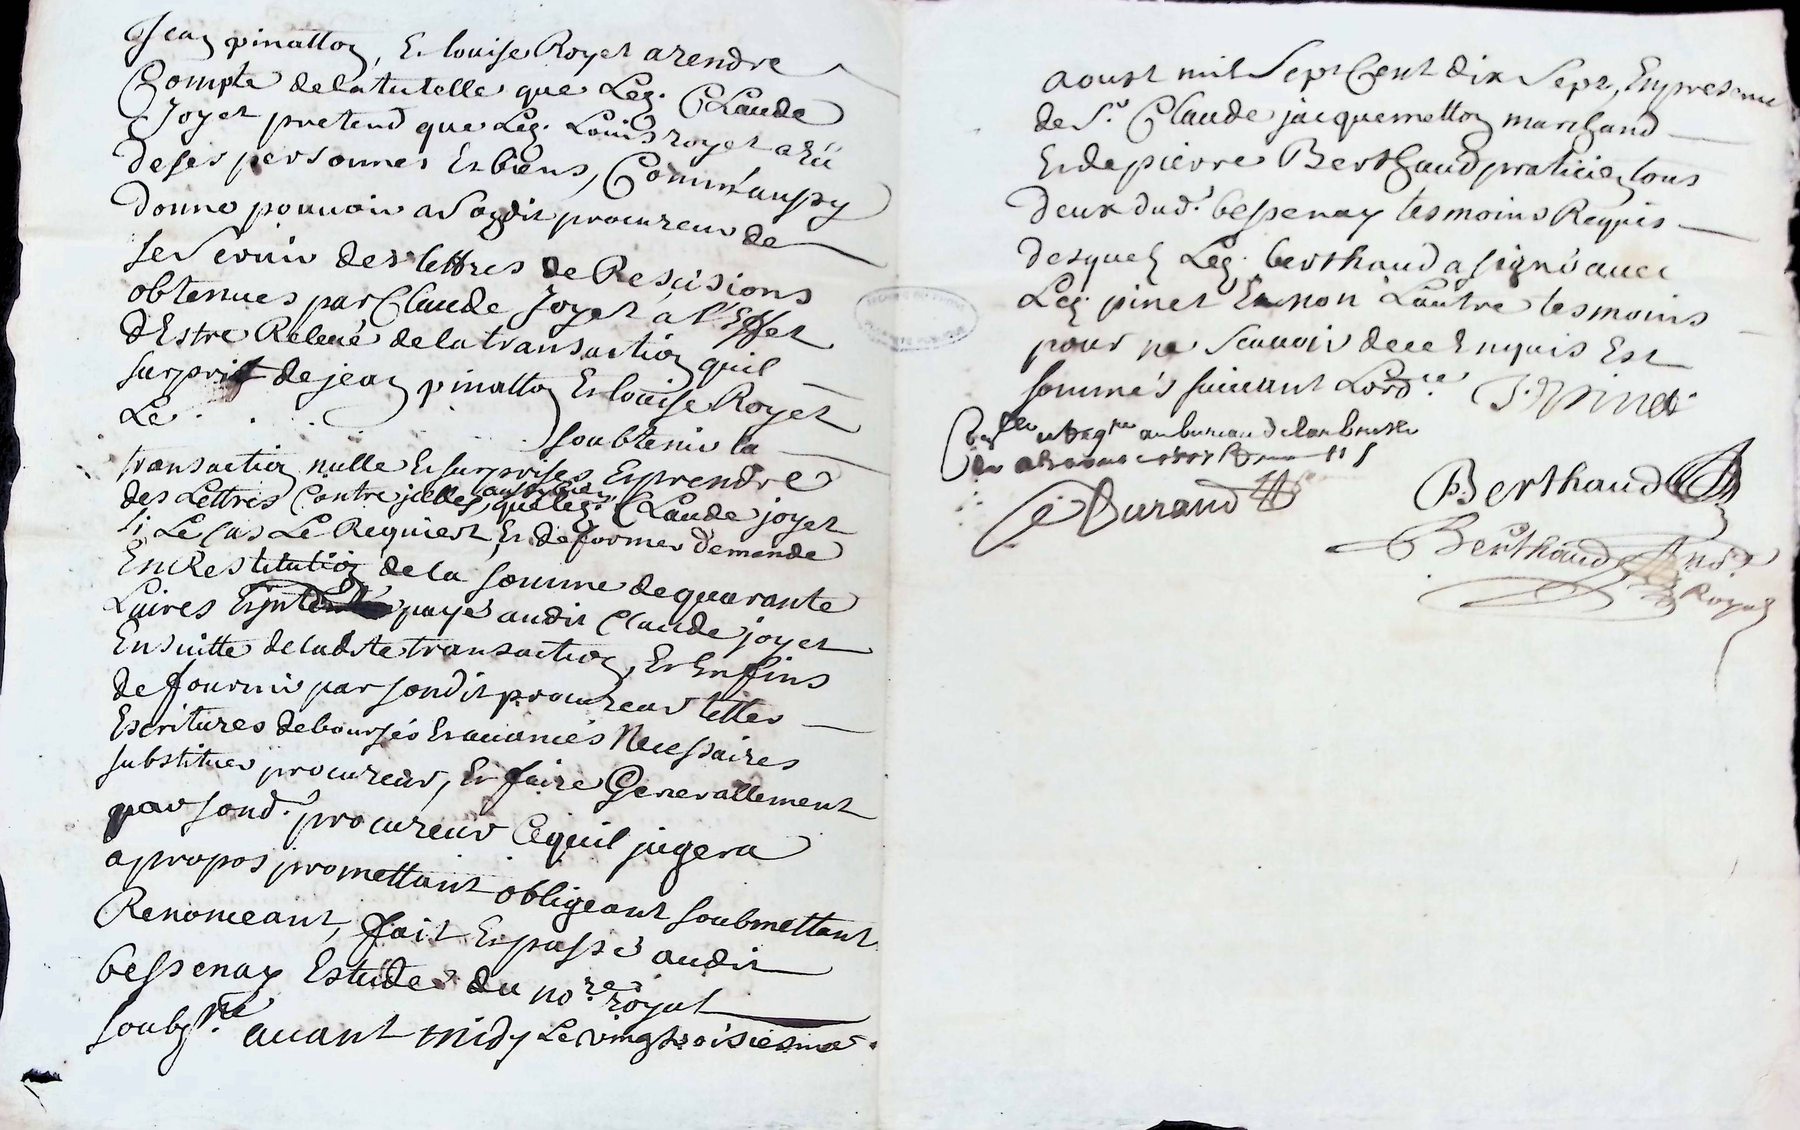 Jean pinatton, Et louise Royet a rendre
Compte de la tutelle que Led. Claude
Joyet pretend que Led. Louis royet a Eü
de ses personnes Et biens, Comm'aussy
donne pouvoir a Sondit procureur de
se Servir des lettres de Rescisions
obtenues par Claude Joyet a l'Effet
d'Estre Relevé de la transaction quil
surprit de jean pinatton Et louise Royet
Le . . . . soubtenir la
transaction nulle Et surprises Et prendre
des Lettres Contre jcelles, que led. Claude joyet
si Le Cas Le Requiert, Et de former demande
En Restitution de la somme de quarante
Livres payé audit Claude joyet
En suitte de ladite transaction, Et Enfins
de fournir par sondit procureur tittes
Escritures deboursés Et avancés Necessaires
substituer procureur, Et faire Generallement
par sond. procureur Ce quil jugera
a propos promettant obligeant soubmettant
Renonceant, fait Et passé audit
bessenay Estude du no.re royal
soubz.né avant midy Le vingtroisiesme
aoust mil Sept Cent dix Sept, En presence
de S.r Claude jacquemetton marchand
Et de pierre Berthaud praticien tous
deux dud.t bessenay tesmoins Requis
desquels Led. berthaud a signé avec
Led. pinet Et non L'autre tesmoins
pour ne Scavoir de ce Enquis Est
sommés suivant Lord.ce J. Pinet
au bureau de larbresle
Durand
P. Berthaud
Berthaud no.re
Royal